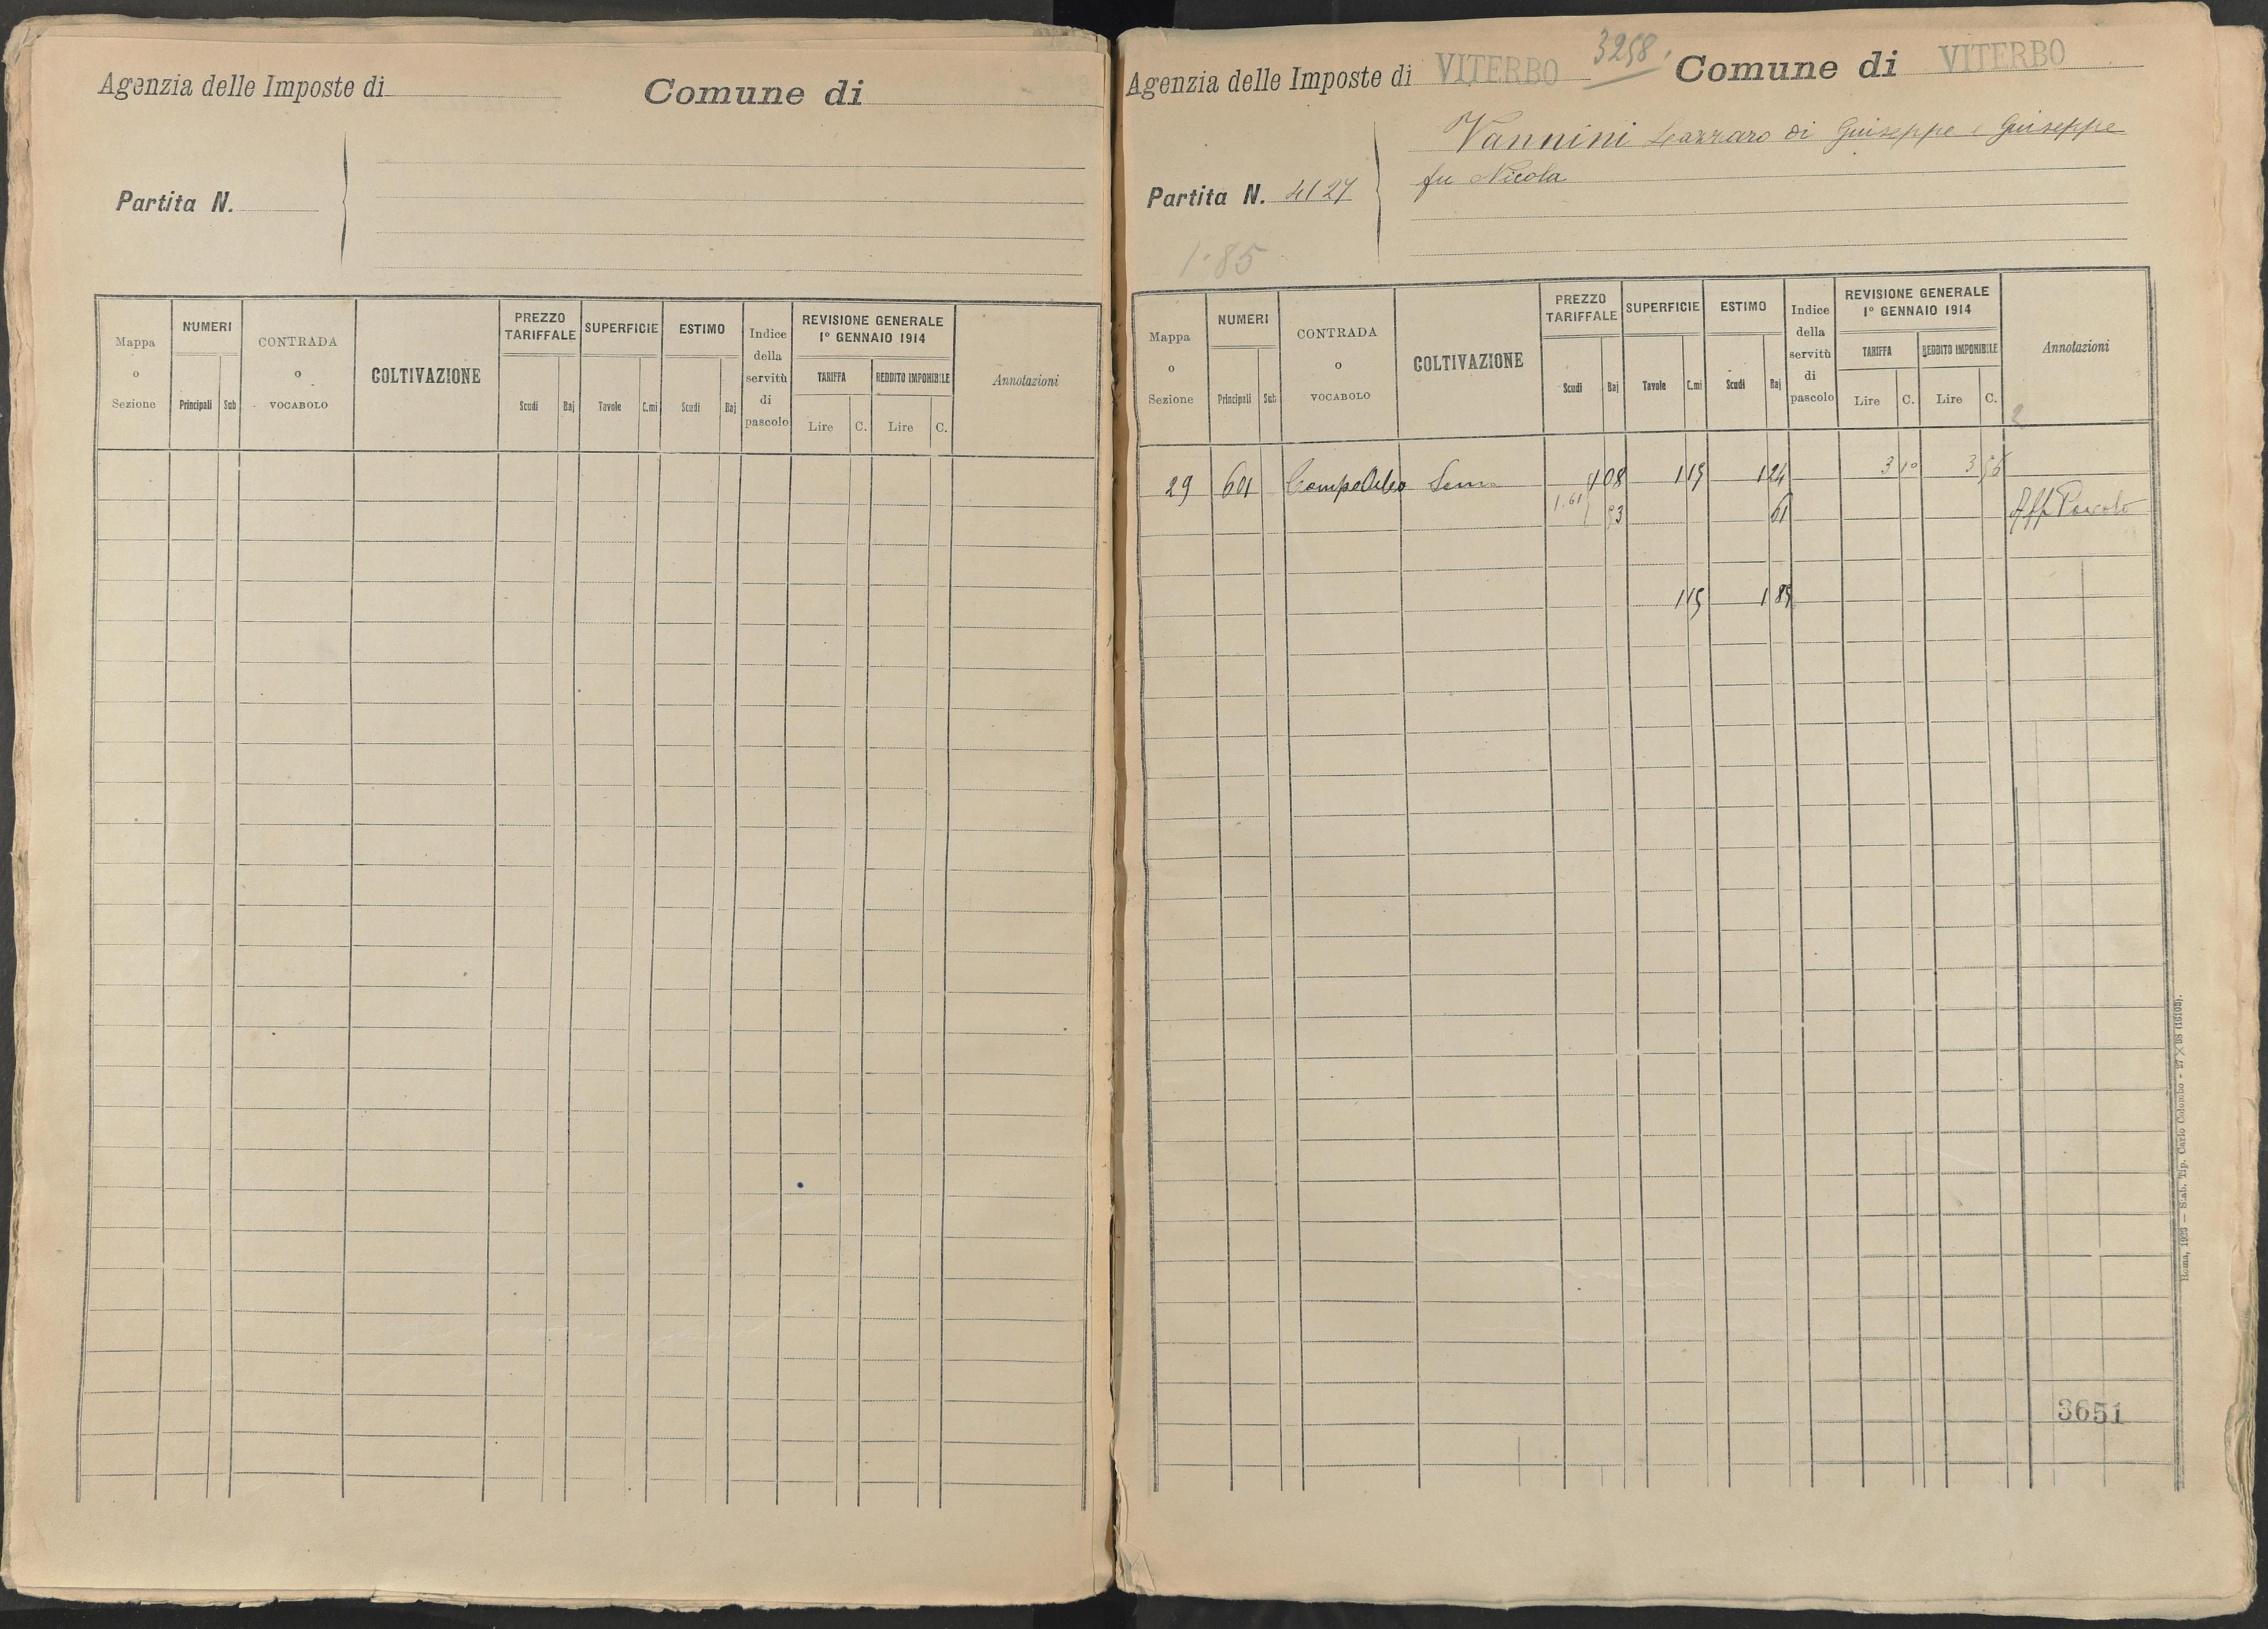 Agenzia delle Imposte di
Comune di
Partita N.
Mappa o Sezione
NUMERI
Principali
Sub
CONTRADA o VOCABOLO
COLTIVAZIONE
PREZZO TARIFFALE
Scudi
Baj
SUPERFICIE
Tavole
C.mi
ESTIMO
Scudi
Baj
Indice della servitù di pascolo
REVISIONE GENERALE
1° GENNAIO 1914
TARIFFA
REDDITO IMPONIBILE
Lire
C.
Lire
C.
Annotazioni
3258
Agenzia delle Imposte di VITERBO
Comune di VITERBO
Vannini Lazzaro di Guiseppe e Guiseppe
fu Nicola
Partita N. 4127
1.85
Mappa o Sezione
NUMERI
Principali
Sub
CONTRADA o VOCABOLO
COLTIVAZIONE
PREZZO TARIFFALE
Scudi
Baj
SUPERFICIE
Tavole
C.mi
ESTIMO
Scudi
Baj
Indice della servitù di pascolo
REVISIONE GENERALE
1° GENNAIO 1914
TARIFFA
REDDITO IMPONIBILE
Lire
C.
Lire
C.
Annotazioni
29 601 1 08 1 15 1 24 3 10 3 56
1.61 53 61 Aff Pascolo
1 15 1 85
3651
Roma, 1925 — Stab. Tip. Carlo Colombo